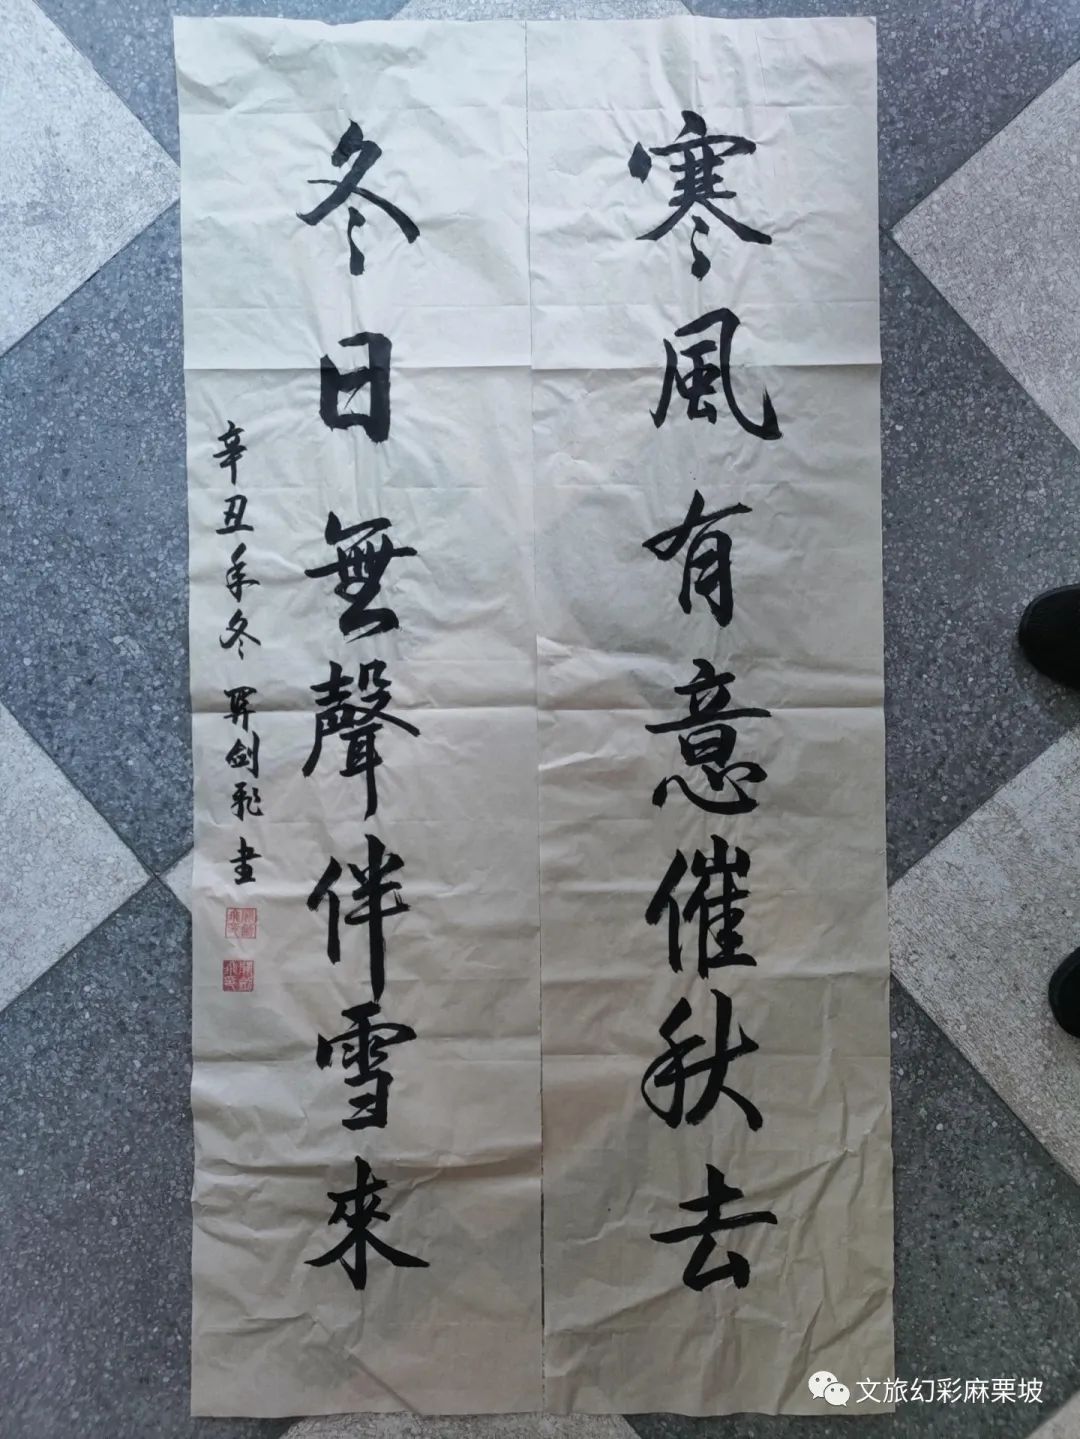 寒風有意催秋去
冬日無聲伴雪來
辛丑年冬 剑飛书
文旅幻彩麻栗坡